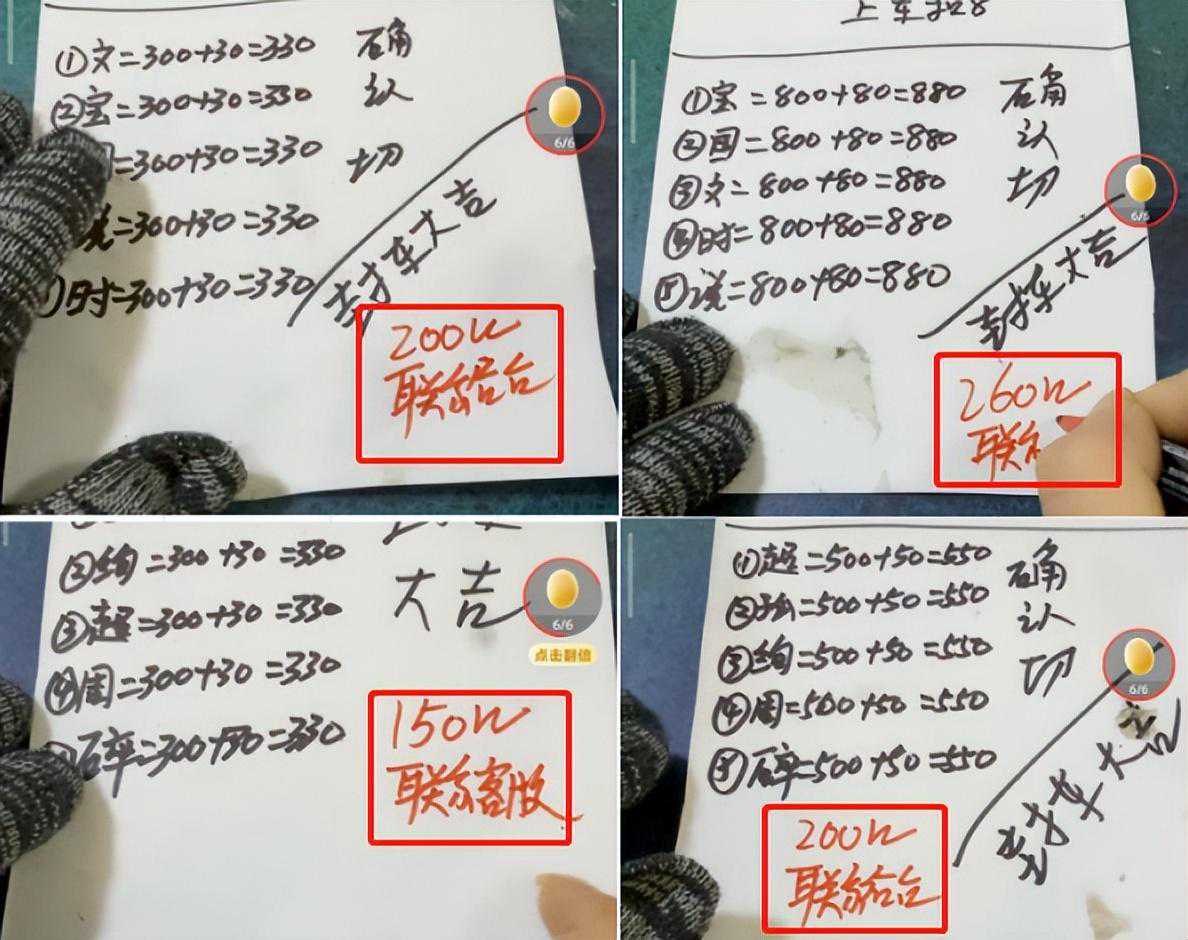 ①文=300+30=330 确
②宝=300+30=330 认
=300+30=330 切
说=300+30=330
时=300+30=330
封车大吉
6/6
200以
联系后台
上车扣8
①宝=800+80=880 确
②国=800+80=880 认
③文=800+80=880 切
④时=800+80=880
⑤说=800+80=880
封车大吉
6/6
260以
联系
②绚=300+30=330
③超=300+30=330
④周=300+30=330
碎=300+30=330
大吉
6/6
点击翻倍
150以
联系客服
①超=500+50=550 确
②孙=500+50=550 认
③绚=500+50=550 切
④周=500+50=550
⑤碎=500+50=550
封车大吉
6/6
200以
联系后台